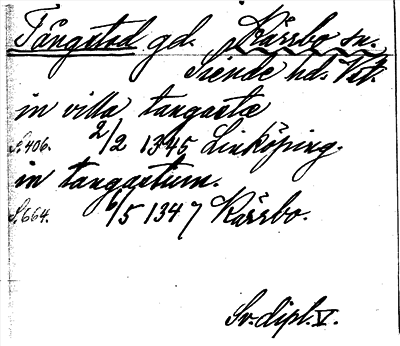 Tångstad gd. Kärrbo sn.
Siende hd. Vstm.
in villa tangastæ
S. 406. 2/2 1345 Linköping.
in tangastum.
S. 664. 6/5 1347 Kärrbo.
Sv. dipl. V.